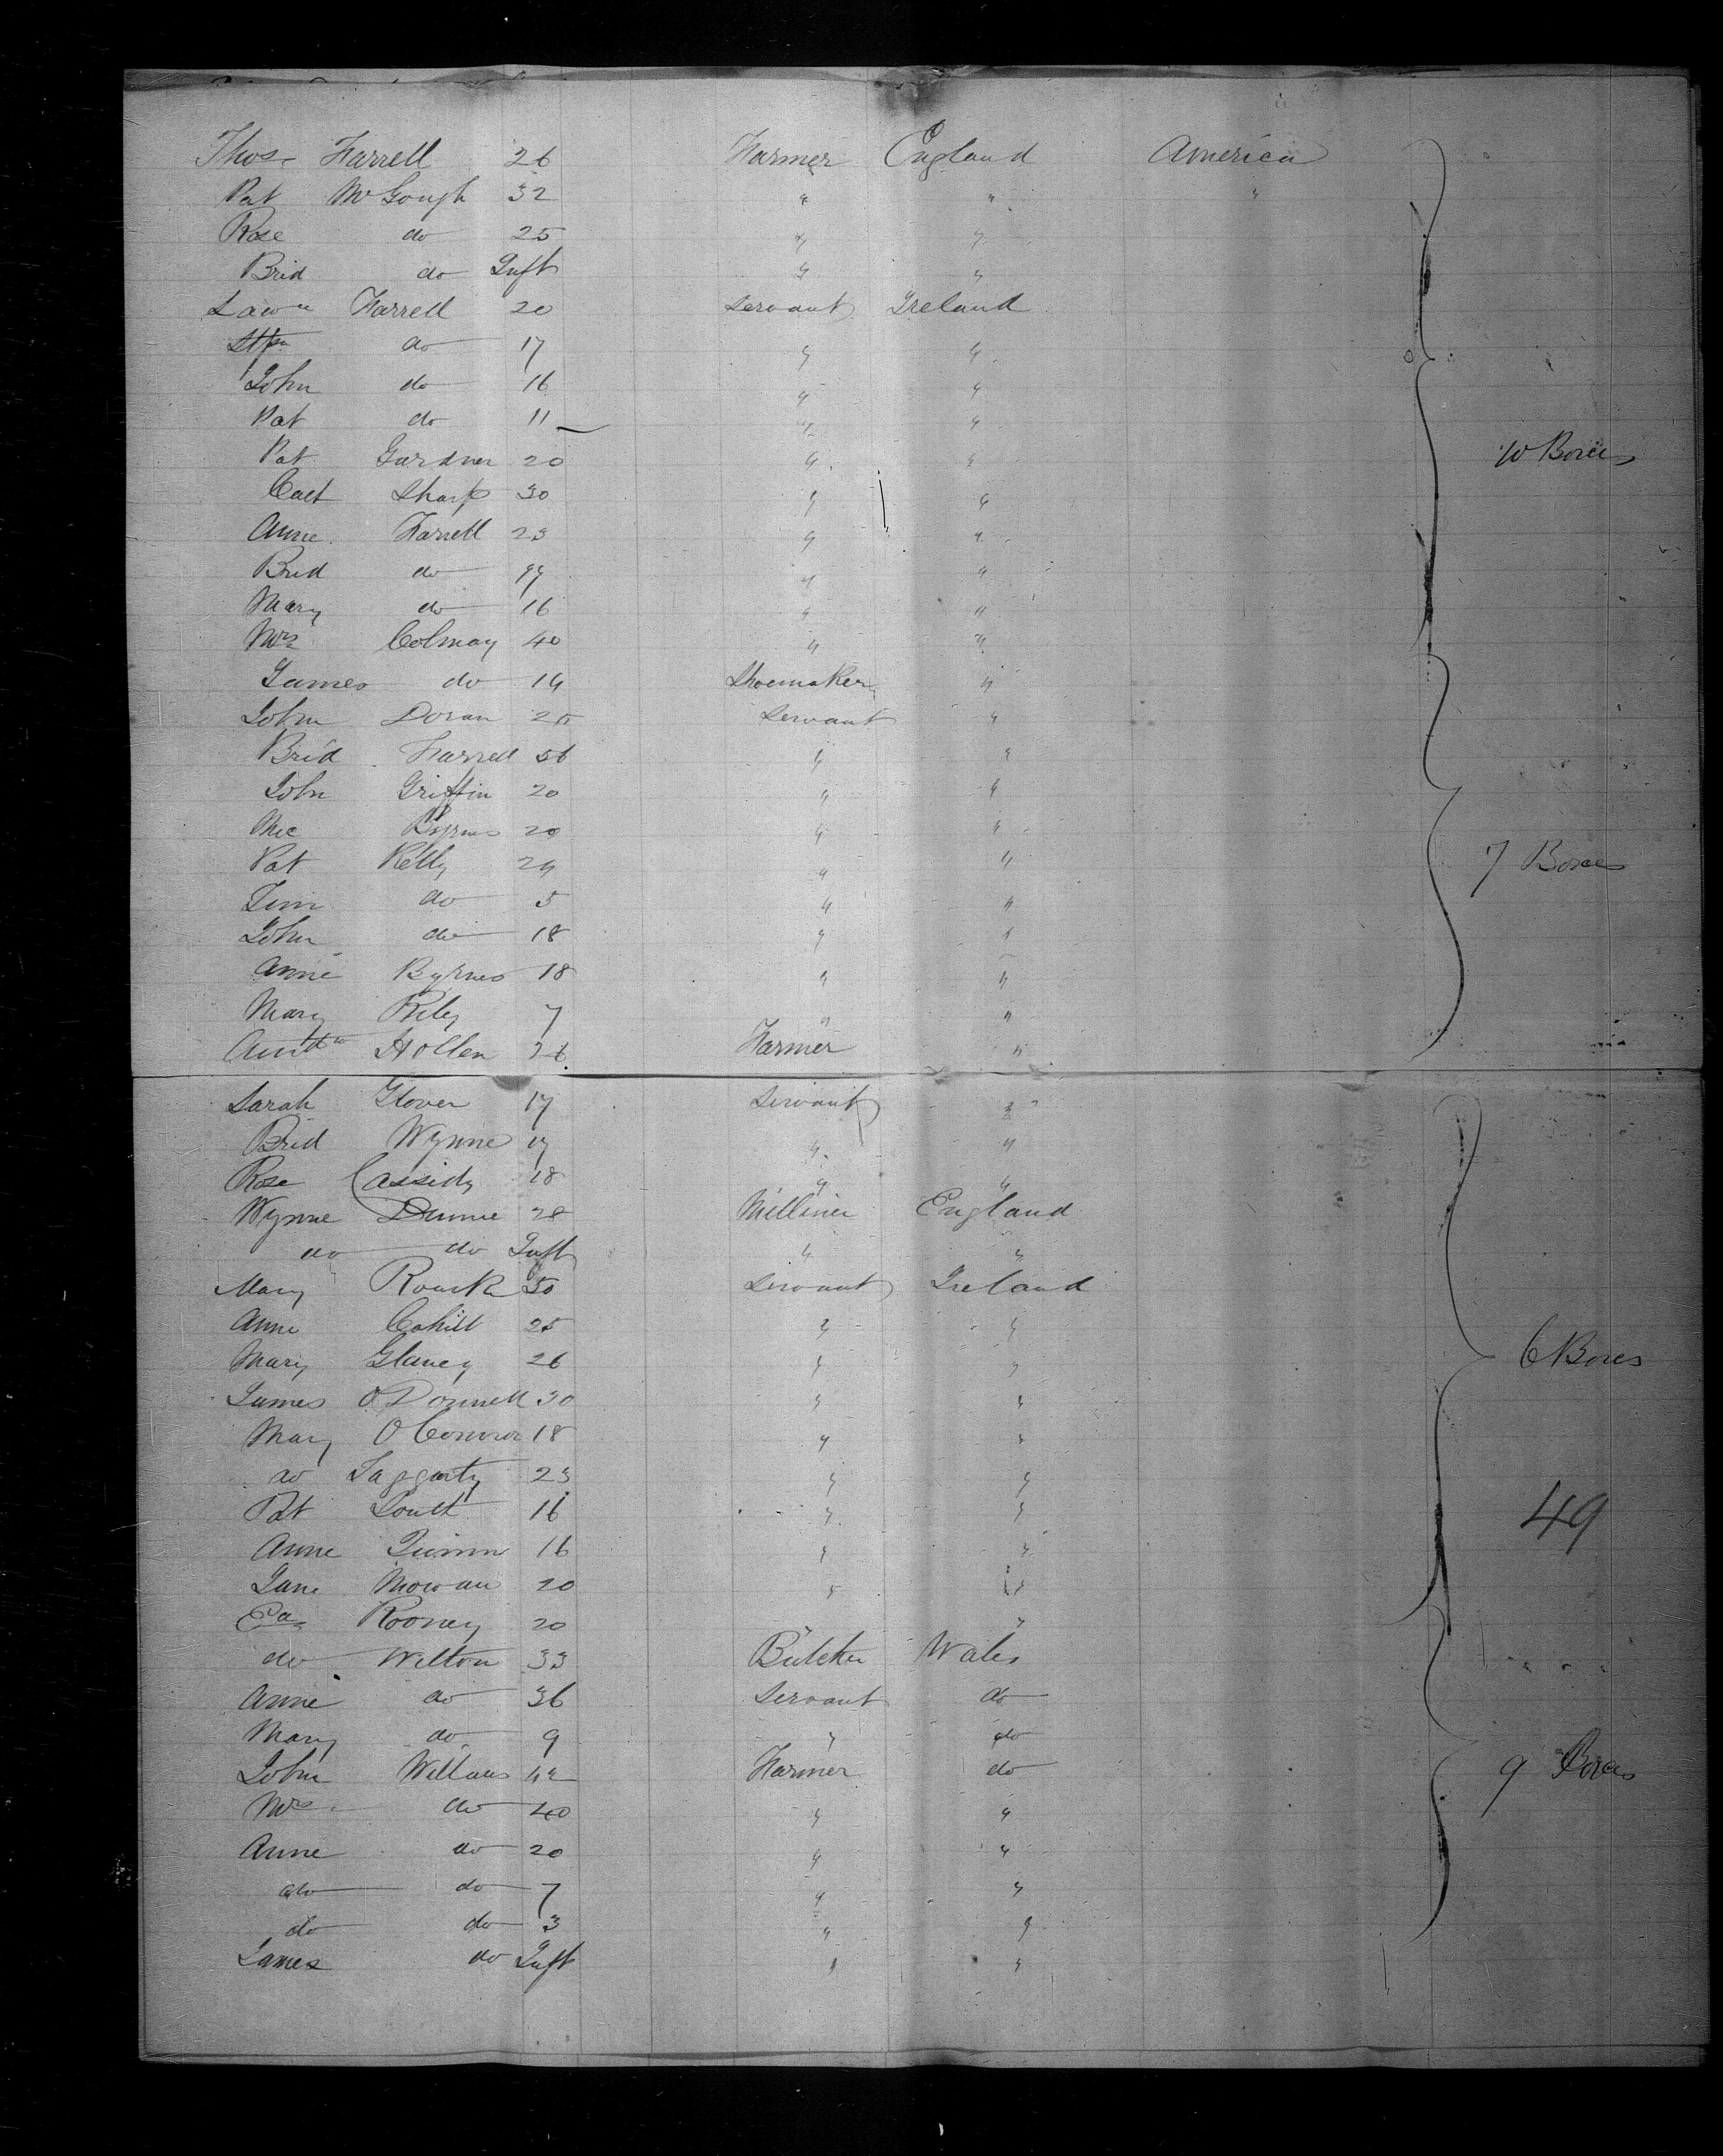 Thos Farrell 26 Farmer England America
Pat McGough 32 " " "
Rose do 25 " "
Brid do Inft " "
Lawce Farrell 20 Servant Ireland
do 17 " "
John do 16 " "
Pat do 11 " "
Pat Gardner 20 " " 10 Boxes
Cat Sharp 30 " "
Anne Farrell 23 " "
Brid do " "
Mary do 16 " "
Mrs Colmay 40 " "
James do 14 Shoemaker "
John Doran 25 Servant "
Brid Farrell 56 " "
John Griffin 20 " "
Mic Byrnes 20 " "
Pat Kelly 24 " " 7 Boxes
Tim do 5 " "
John do 18 " "
Anne Byrnes 18 " "
Mary Riley 7 " "
Hollen 26 Farmer "
Sarah Glover 17 Servant "
Brid Wynne 17 " "
Rose Cassidy 18 " "
Wynne Dunne 28 Milliner England
do do Inft " "
Mary Rourke 50 Servant Ireland
Anne Cahill 25 " "
Mary Glancy 26 " " 6 Boxes
James O'Donnell 30 " "
Mary O'Connor 18 " "
do Taggarty 23 " "
Pat 16 " " 49
Anne Quinn 16 " "
Jane Mowan 20 " "
Rooney 20 " "
do Wilton 33 Butcher Wales
Anne do 36 Servant do
Mary do 9 " do
John Willans 42 Farmer do 9 Boxes
Mrs do 40 " "
Anne do 20 " "
do do 7 " "
do do 3 " "
James do Inft " "